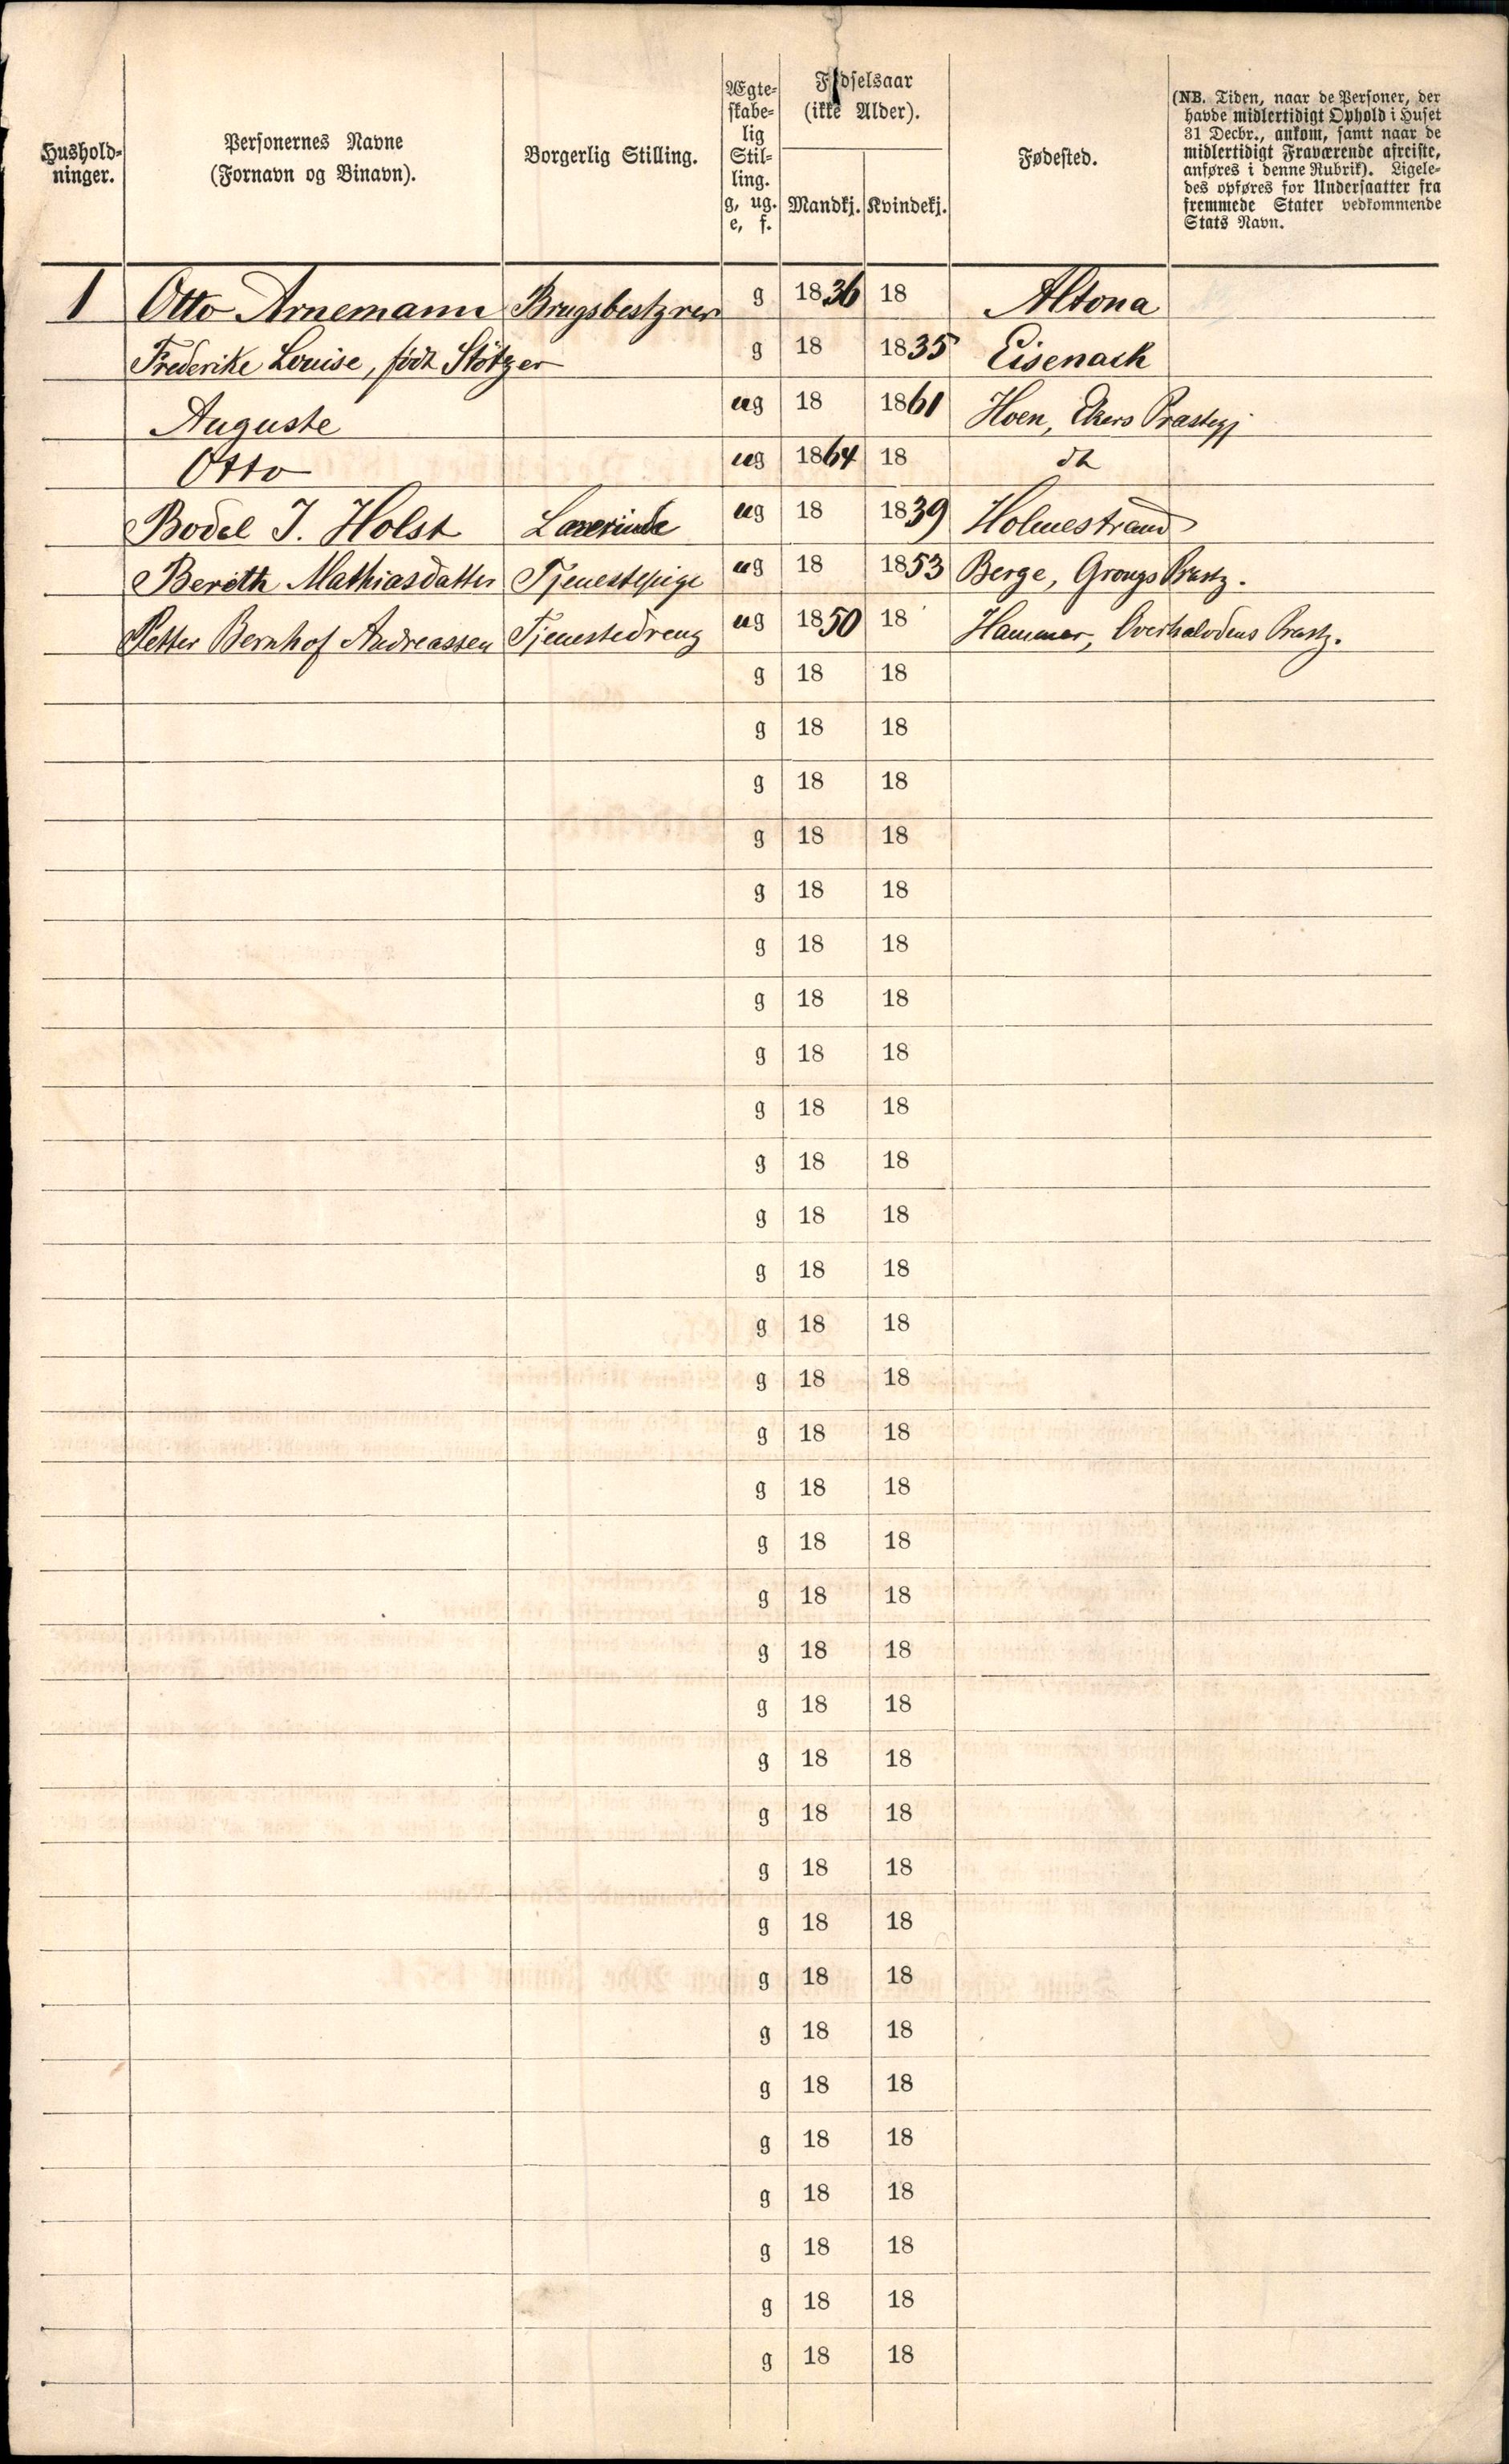 Hushold-
ninger.
Personernes Navne
(Fornavn og Binavn).
Borgerlig Stilling.
Ægte-
skabe-
lig
Stil-
ling.
g, ug.
e, f.
Fødselsaar
(ikke Alder).
Mandkj. Kvindekj.
Fødested.
(NB. Tiden, naar de Personer, der
havde midlertidigt Ophold i Huset
31 Decbr., ankom, samt naar de
midlertidigt Fraværende afreiste,
anføres i denne Rubrik). Ligele-
des opføres for Undersaatter fra
fremmede Stater vedkommende
Stats Navn.
1 Otto Arnemann Brugsbestyrer g 1836 18 Altona
Frederike Louise, född Stötzer g 18 1835 Eisenach
Auguste ug 18 1861 Hoen, Ekers Præstegj
Otto ug 1864 18 do
Bodel J. Holst Lærerinde ug 18 1839 Holmestrand
Berith Mathiasdatter Tjenestepige ug 18 1853 Berge, Grongs Præstg.
Petter Bernhof Andreassen Tjenestedreng ug 1850 18 Hammer, Overhalvdens Præstg.
g 18 18
g 18 18
g 18 18
g 18 18
g 18 18
g 18 18
g 18 18
g 18 18
g 18 18
g 18 18
g 18 18
g 18 18
g 18 18
g 18 18
g 18 18
g 18 18
g 18 18
g 18 18
g 18 18
g 18 18
g 18 18
g 18 18
g 18 18
g 18 18
g 18 18
g 18 18
g 18 18
g 18 18
g 18 18
g 18 18
g 18 18
g 18 18